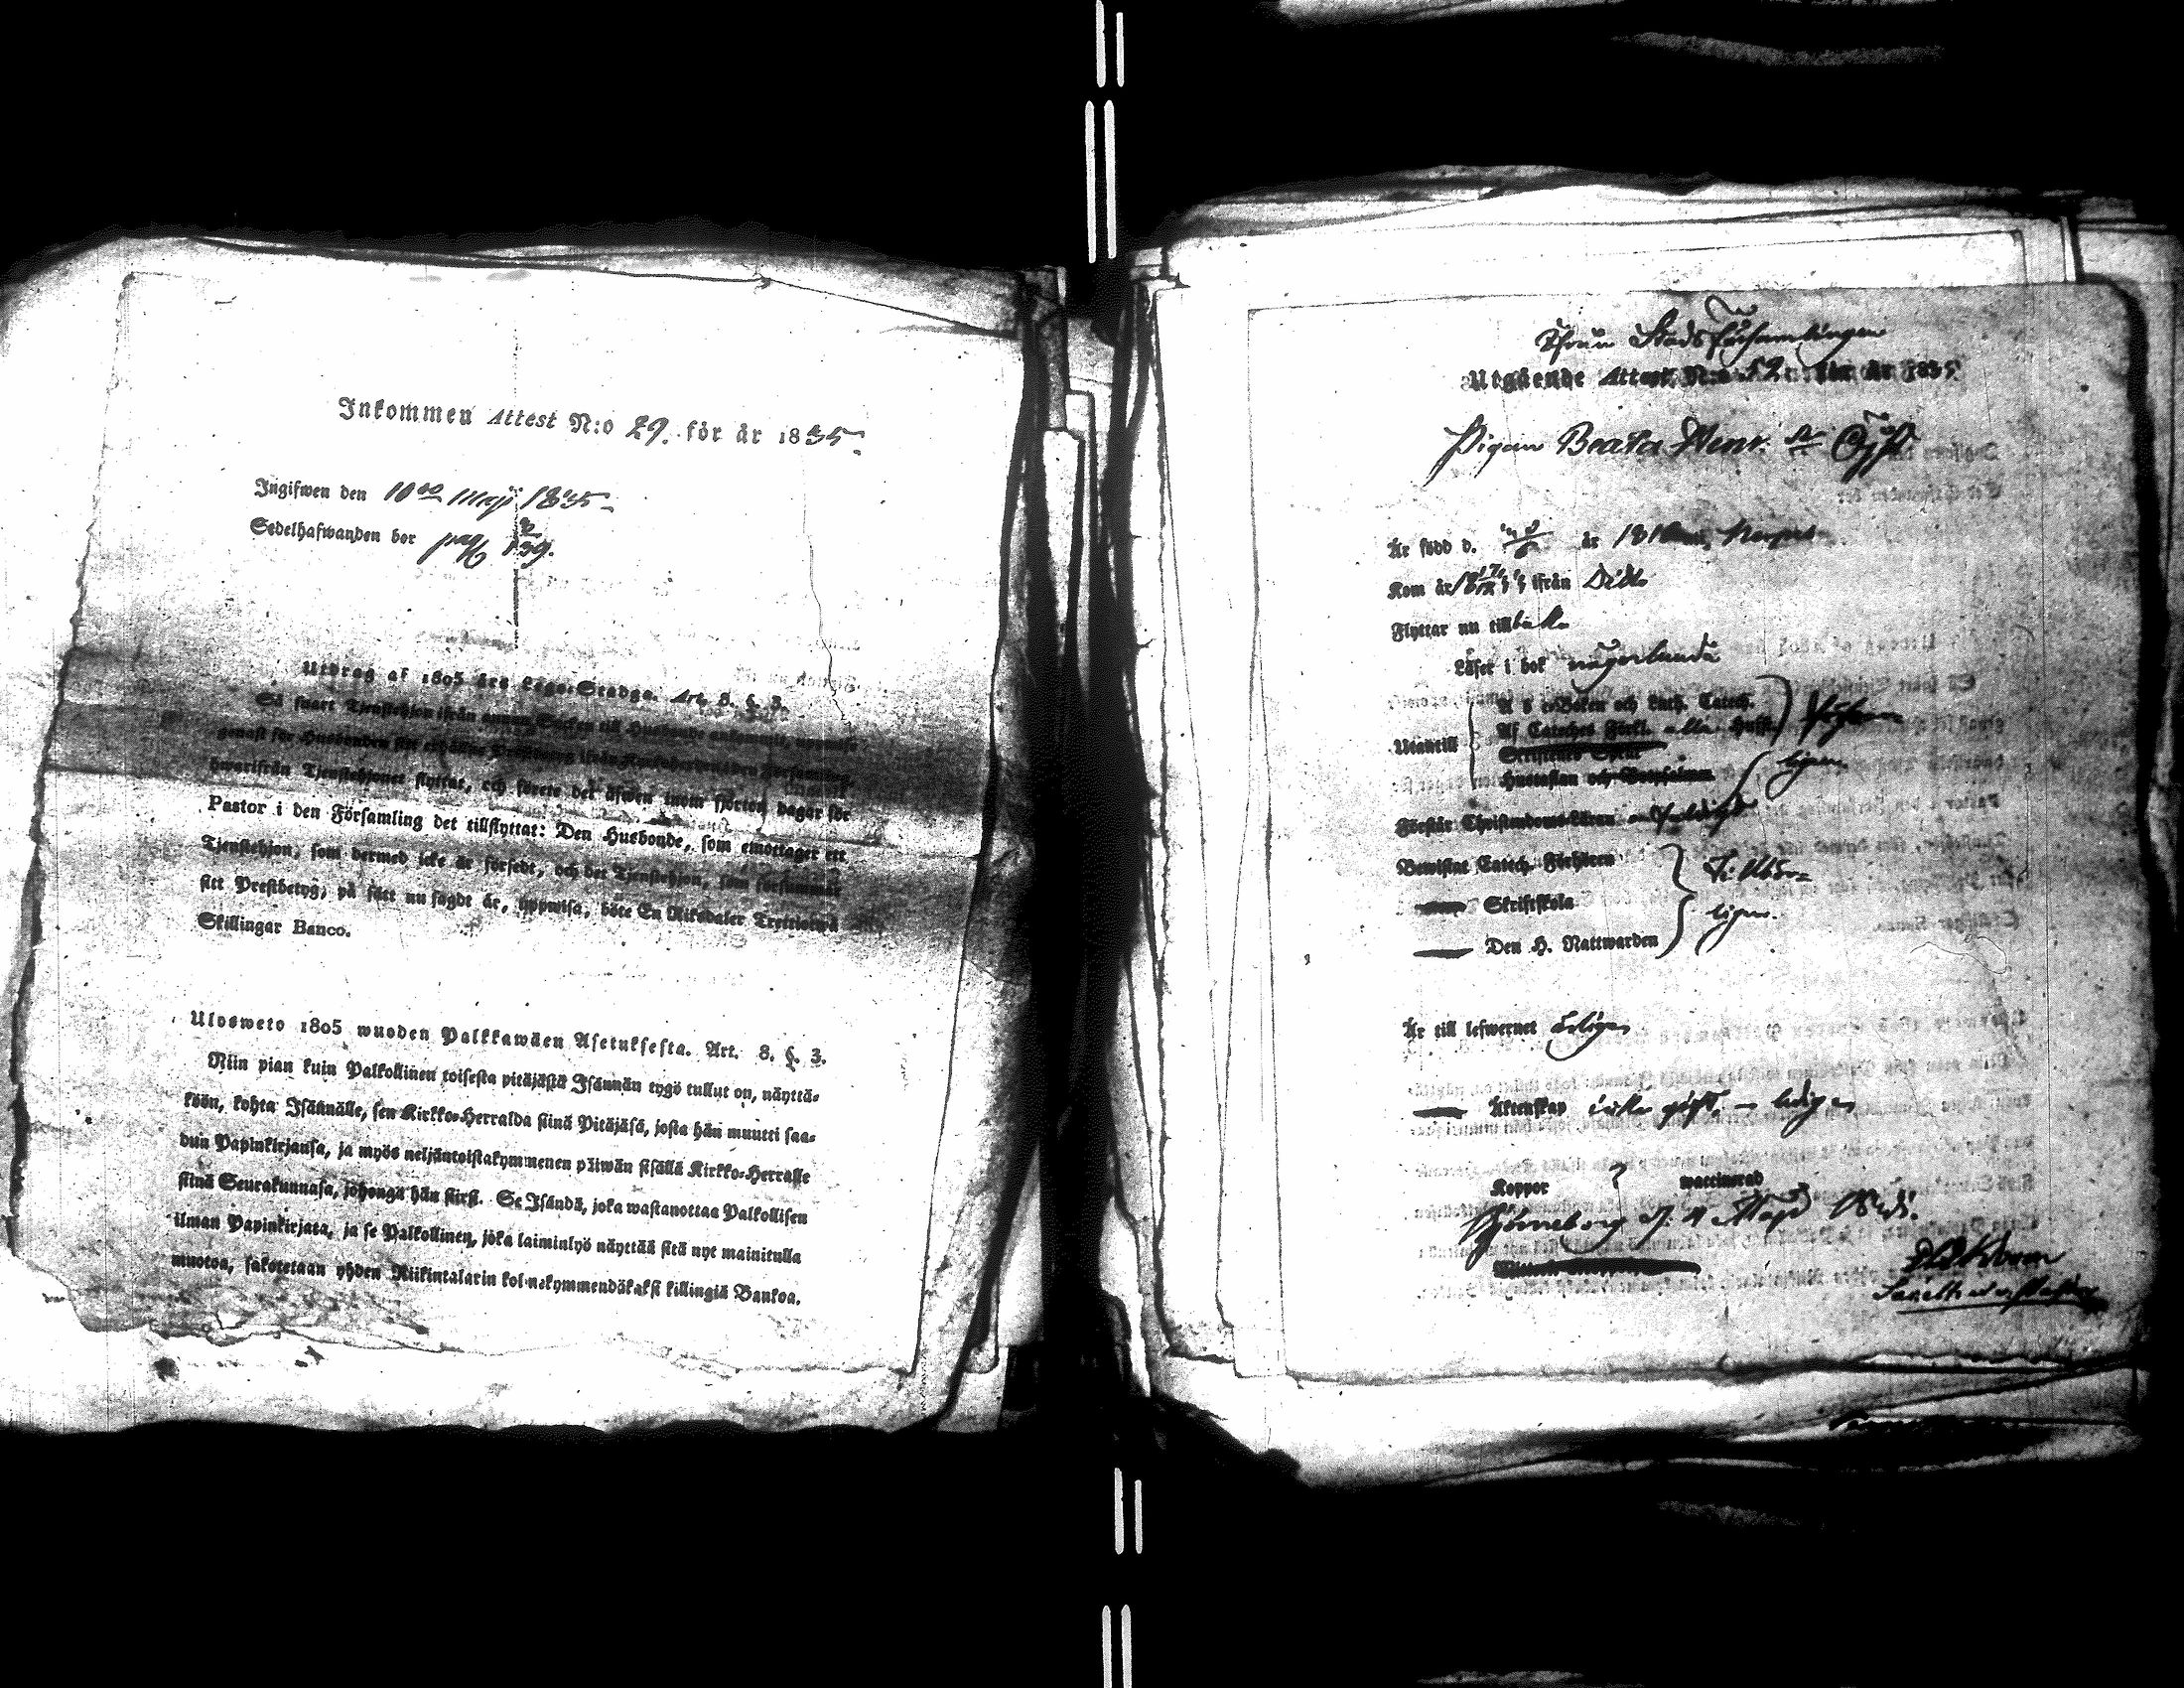 Inkommen Attest N:o 29. för år 1835.
Ingifwen den 10de Maji 1835
Sedelhafwanden bor pag 139.
Utdrag af 1805 års Lego-Stadga. Art. 8. §. 3.
Så snart Tjenstehjon ifrån annan Socken till Husbonde ankommit, uppwise
genast för Husbonden sitt erhållne Prestbetyg ifrån Kyrkoherden i den Församling,
hwarifrån Tjenstehjonet flyttat, och förete det äfwen inom fjorton dagar för
Pastor i den Församling det tillflyttat: Den Husbonde, som emottager ett
Tjenstehjon, som dermed icke är försedt, och det Tjenstehjon, som försummat
sitt Prestbetyg, på sätt nu sagdt är, uppwisa, böte En Riksdaler Trettiotwå
Skillingar Banco.
Ulosweto 1805 wuoden Palkkawäen Asetuksesta. Art. 8. §. 3.
Niin pian kuin Palkollinen toisesta pitäjästä Isännän tygö tullut on, näyttä-
köön, kohta Isännälle, sen Kirkko-Herralda siinä Pitäjäsä, josta hän muutti saa-
dun Papinkirjansa, ja myös neljäntoistakymmenen päiwän sisällä Kirkko-Herralle
siinä Seurakunnasa, johonga hän siirsi. Se Isändä, joka wastanottaa Palkollisen
ilman Papinkirjata, ja se Palkollinen, joka laiminlyö näyttää sitä nyt mainitulla
muotoa, sakotetaan yhden Riikintalarin kolmekymmendäkaksi killingiä Bankoa.
ifrån Stads Församlingen
Utgående Attest N:o 52. för år 1835
Pigan Beata Henr. dr
Är född d. år
Kom år ifrån
Flyttar nu till
Läser i bok någorlunda
Utantill
A b c-Boken och Luth. Catech.
Af Cateches Förkl. alla Hufst.
Skriftenes Språk
Hustaflan och Botpsalmen
Förstår Christendoms-Läran
Bewistat Catech. Förhören
Skriftskola
Den H. Nattwarden
Är till lefwernet ärlig
Äktenskap icke gift, – ledig
Koppor ? waccinerad
Björneborg d. 4 Maji 1835.